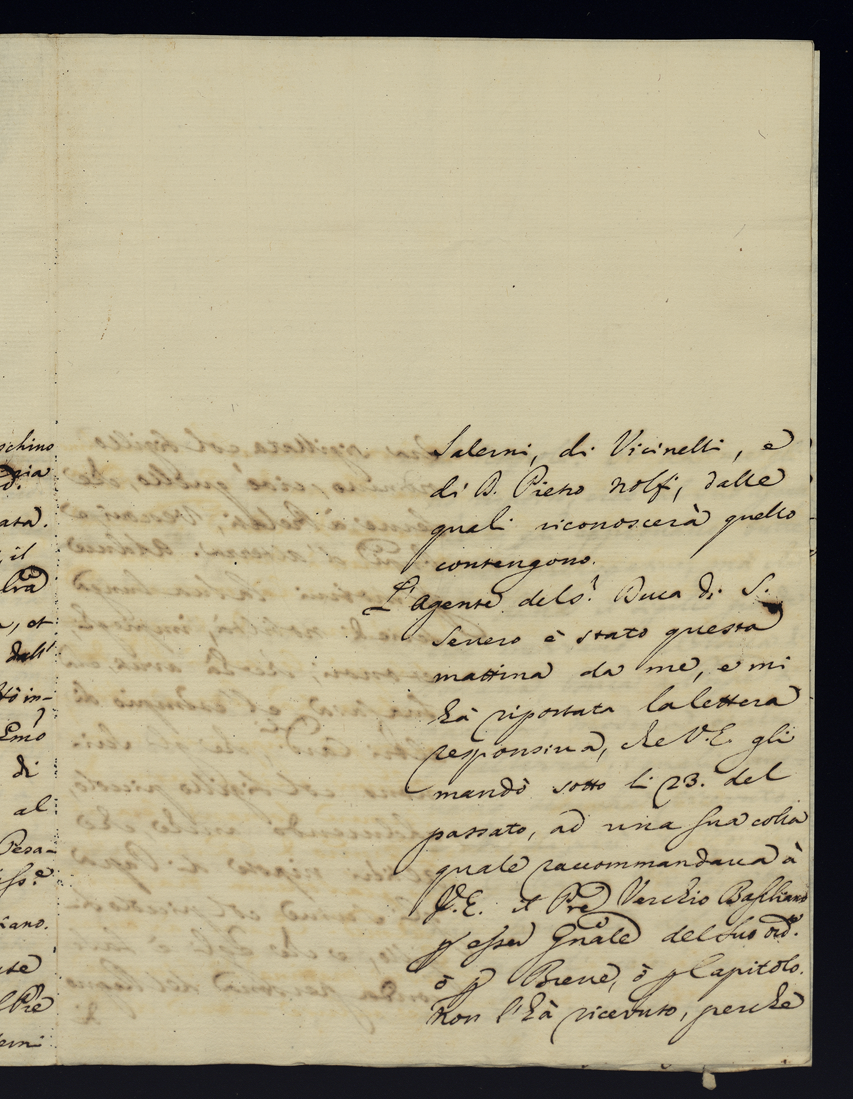 Salerni, di Vicinelli, e
di D. Pietro Nolfi, dalle
quali riconoscerà quello
contengono.
L'Agente del S.r Duca di S.
Severo è stato questa
mattina da me, e mi
hà riportata la lettera
responsiva, che V.E. gli
mandò sotto li 23. del
passato, ad una sua colla
quale raccommandava à
V.E. il Pre Vecchio Basiliano
p esser Gnale del suo ord.e
ò p Breve, ò p Capitolo.
Non l'hà ricevuto, perche
schino
ata.
il
et
dall'
di
al
Pesa-
Pre